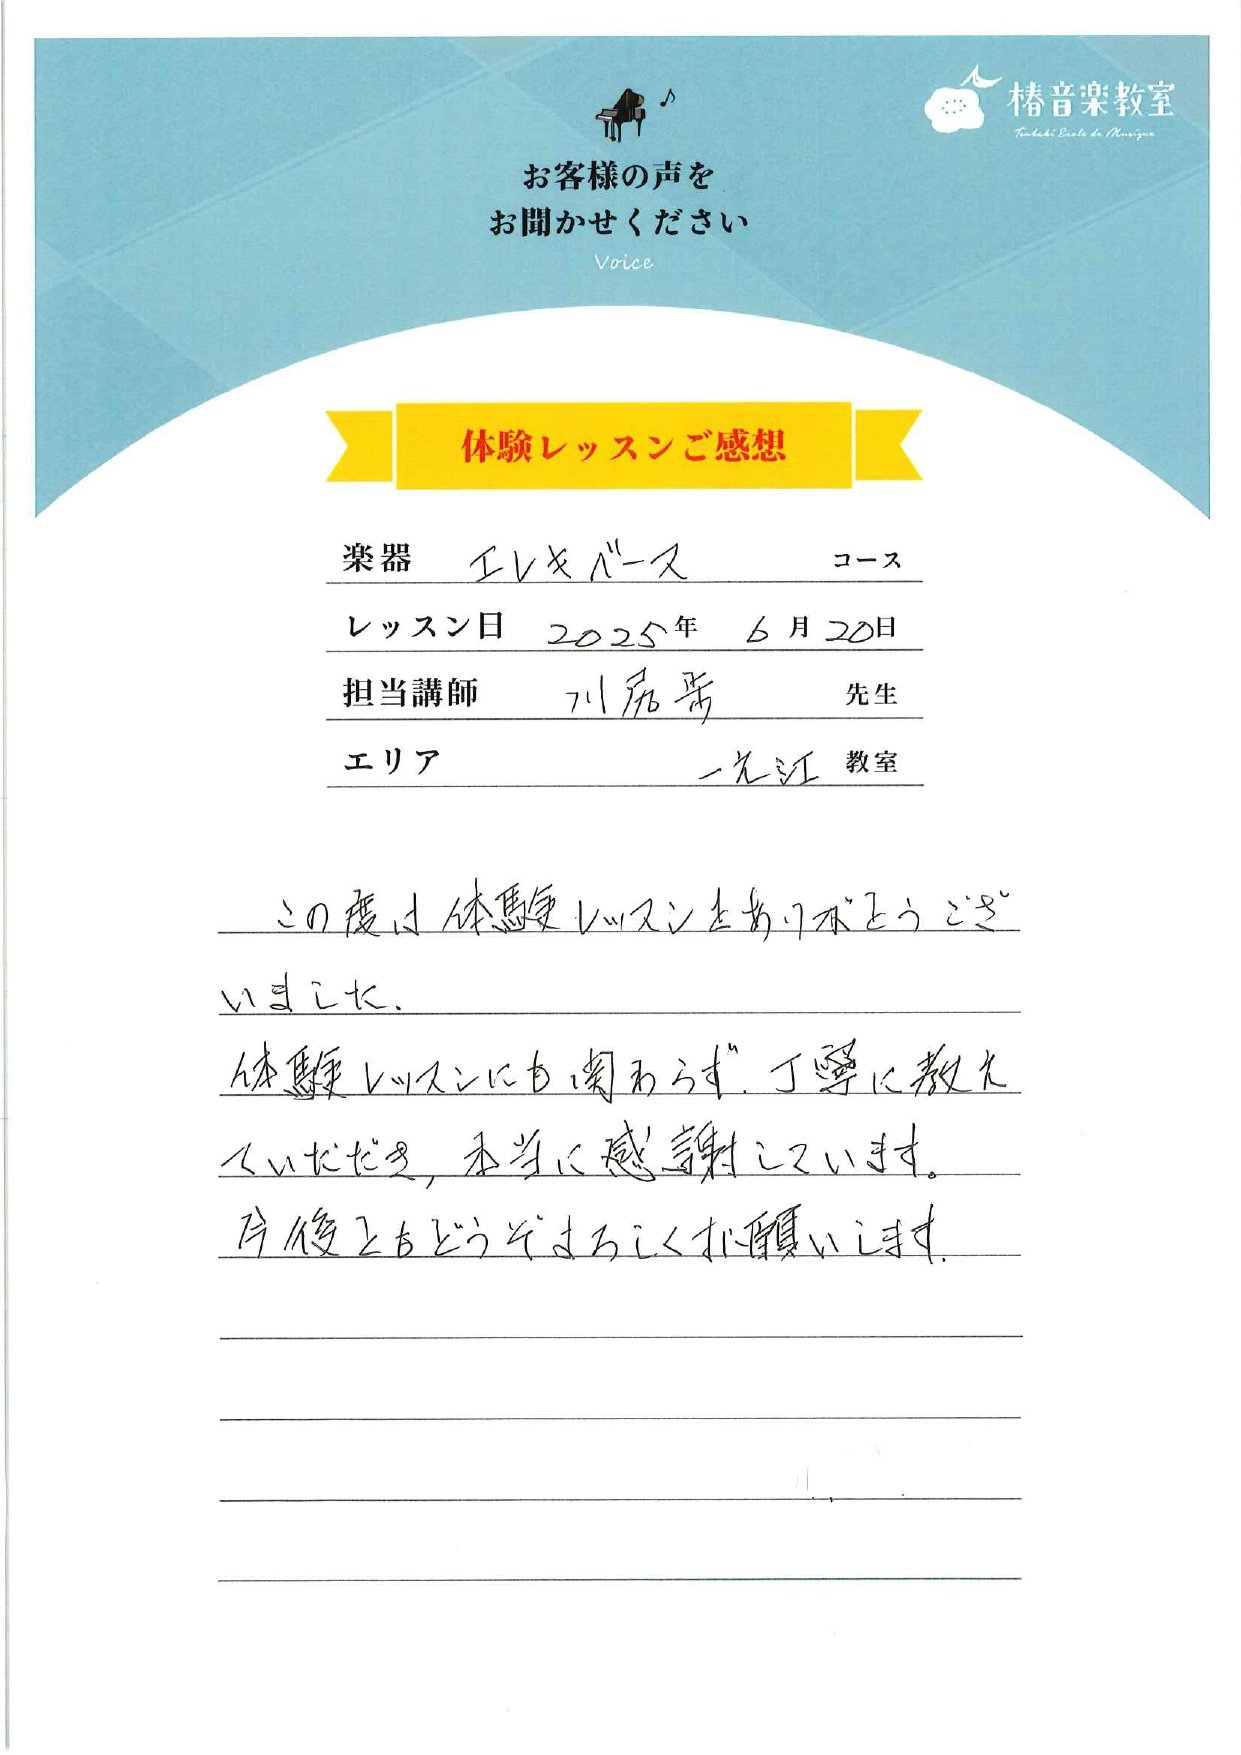 椿音楽教室
Tsubaki Ecole de Musique
お客様の声を
お聞かせください
Voice
体験レッスンご感想
楽器 エレキベース コース
レッスン日 2025年 6月20日
担当講師 川尻歩 先生
エリア 一之江 教室
この度は体験レッスンをありがとうござ
いました.
体験レッスンにも関わらず.丁寧に教え
ていただき,本当に感謝しています。
今後ともどうぞよろしくお願いします.